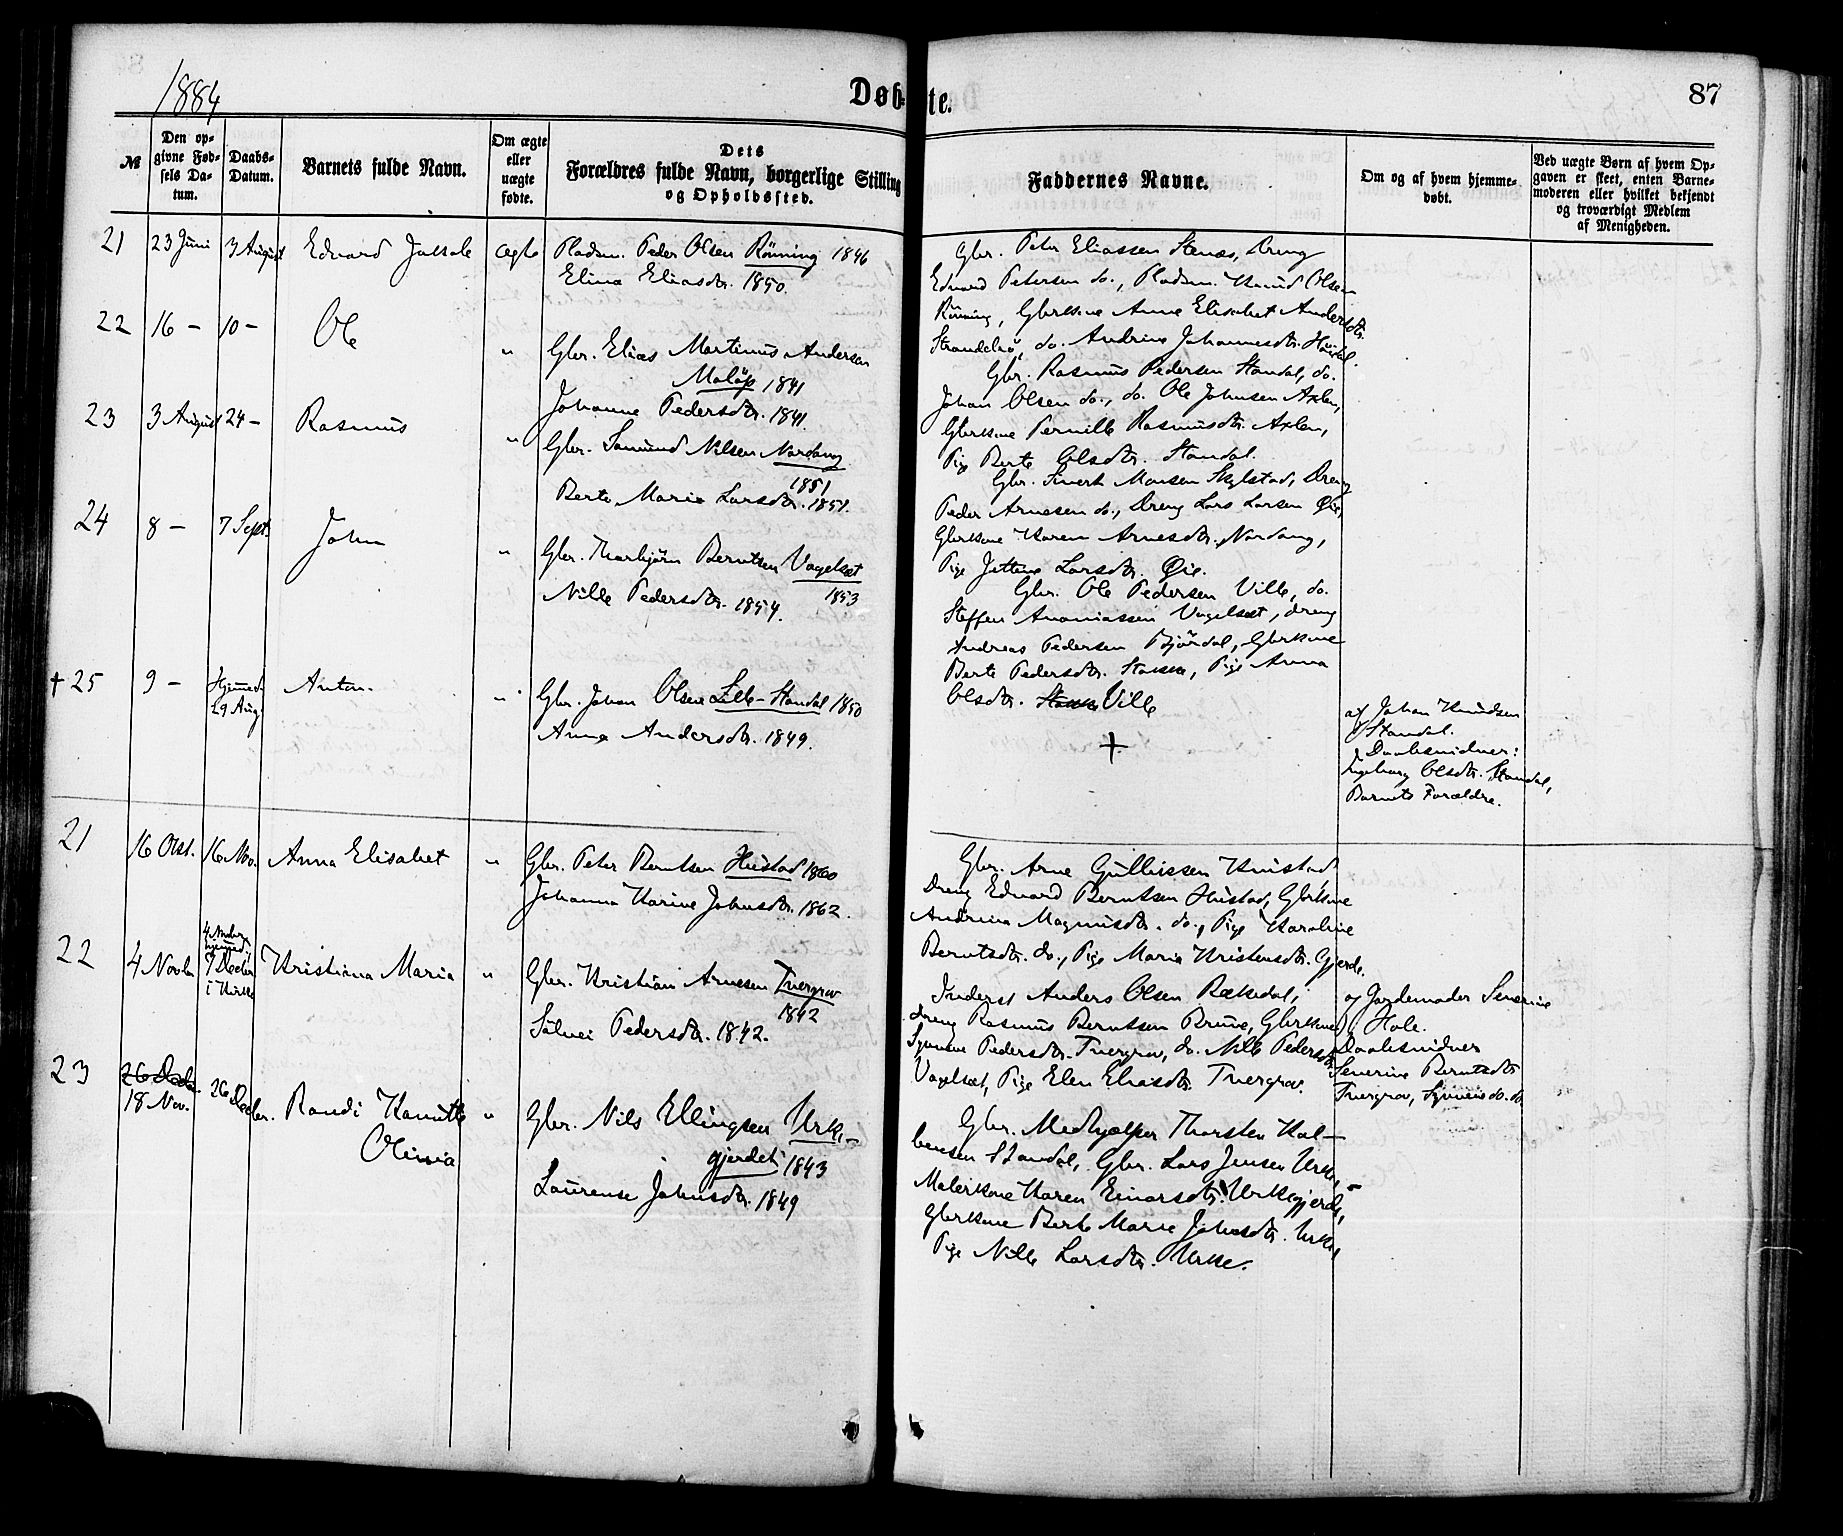 1884
Døb- te.
87
№
Den op-
givne Fød-
sels Da-
tum.
Daabs-
Datum.
Barnets fulde Navn.
Om ægte
eller
uægte
fødte.
Dets
Forældres fulde Navn, borgerlige Stilling
og Opholdssted.
Faddernes Navne.
Om og af hvem hjemme-
døbt.
Ved uægte Børn af hvem Op-
gaven er skeet, enten Barne-
moderen eller hvilket bekjendt
og troværdigt Medlem
af Menigheden.
21 23 Juni 3 August Edvard Jakob ægte Pladsm. Peder Olsen Rönning 1846
Elina Eliasdtr. 1850.
Gbr. Peter Eliassen Stenæs, Dreng
Edvard Petersen do., Pladsm. Knud Olsen
Rönning, Gbrkone Anne Elisabet Andersdtr.
do. Andrine Johannesdtr.
22 16 – 10 – Ole " Gbr. Elias Martinus Andersen
1841
Johanne Pedersdtr. 1841.
Gbr. Rasmus Pedersen Standal, do.
Johan Olsen do., do. Ole Johnsen Axlen,
Gbrkone Pernille Rasmusdtr. Axlen,
Pige Berte Olsdtr. Standal.
23 3 August 24 – Rasmus " Gbr. Samund Nilsen Nordang
1851
Berte Marie Larsdtr. 1851.
Gbr. Sivert Monsen Skylstad, Dreng
Peder Arnesen do., Dreng Lars Larsen Øie,
Gbrkone Karen Arnesdtr. Nordang,
Pige Larsdtr. Øie.
24 8 – 7 Sept. John " Gbr. Thorbjørn Berntsen Vagelsæt
1853
Nille Pedersdtr. 1854.
Gbr. Ole Pedersen Ville, do.
Steffen Ananiassen Vagelsæt, dreng
Andreas Pedersen Bjørdal, Gbrkone
Berte Pedersdtr. Pige Anna
Olsdtr. Ville
† 25 9 – Hjemmed.
29 Aug. Anton. " Gbr. Johan Olsen Lille-Standal 1850
Anne Andersdtr. 1849.
†
af Johan Knudsen
Standal.
Daabsvidner:
Ingeborg Olsdtr. Standal,
Barnets Forældre.
21 16 Okt. 16 Nov. Anna Elisabet " Gbr. Peter Berntsen Hustad 1860
Johanna Karine Johnsdtr. 1862.
Gbr. Arne Gulliksen
Dreng Edvard Berntsen Hustad, Gbrkone
Andrina Magnusdtr. do., Pige Karoline
Berntsdtr. do., Pige Marie Kristensdtr. Gjerde.
22 4 Novbr
hjemmed.
7 Decbr
i Kirke Kristiana Maria " Gbr. Kristian Arnesen Tvergrov
1842
Silvei Pedersdtr. 1842.
Inderst Anders Olsen Rækedal,
dreng Rasmus Berntsen Brune, Gbrkone
Synneve Pedersdtr. Tvergrov, do. Nille Pedersdtr.
Vagelsæt, Pige Elen Eliasdtr. Tvergrov.
af Jordemoder Severine
Hole.
Daabsvidner
Severine Berntsdtr
Tvergrov, do. do.
23 26 Decbr
18 Nov. 26 Decbr. Randi Kanutte
Olivia " Gbr. Nils Ellingsen Urke-
gjerdet 1843
Laurense Johnsdtr. 1849
Gbr. Medhjælper Thorsten Kol-
bensen Standal, Gbr. Lars Jensen Urke,
Malerkone Karen Einarsdtr. Urkegjerde,
Gbrkone Berte Marie Johnsdtr. Urke,
Pige Nille Larsdtr. Urke.